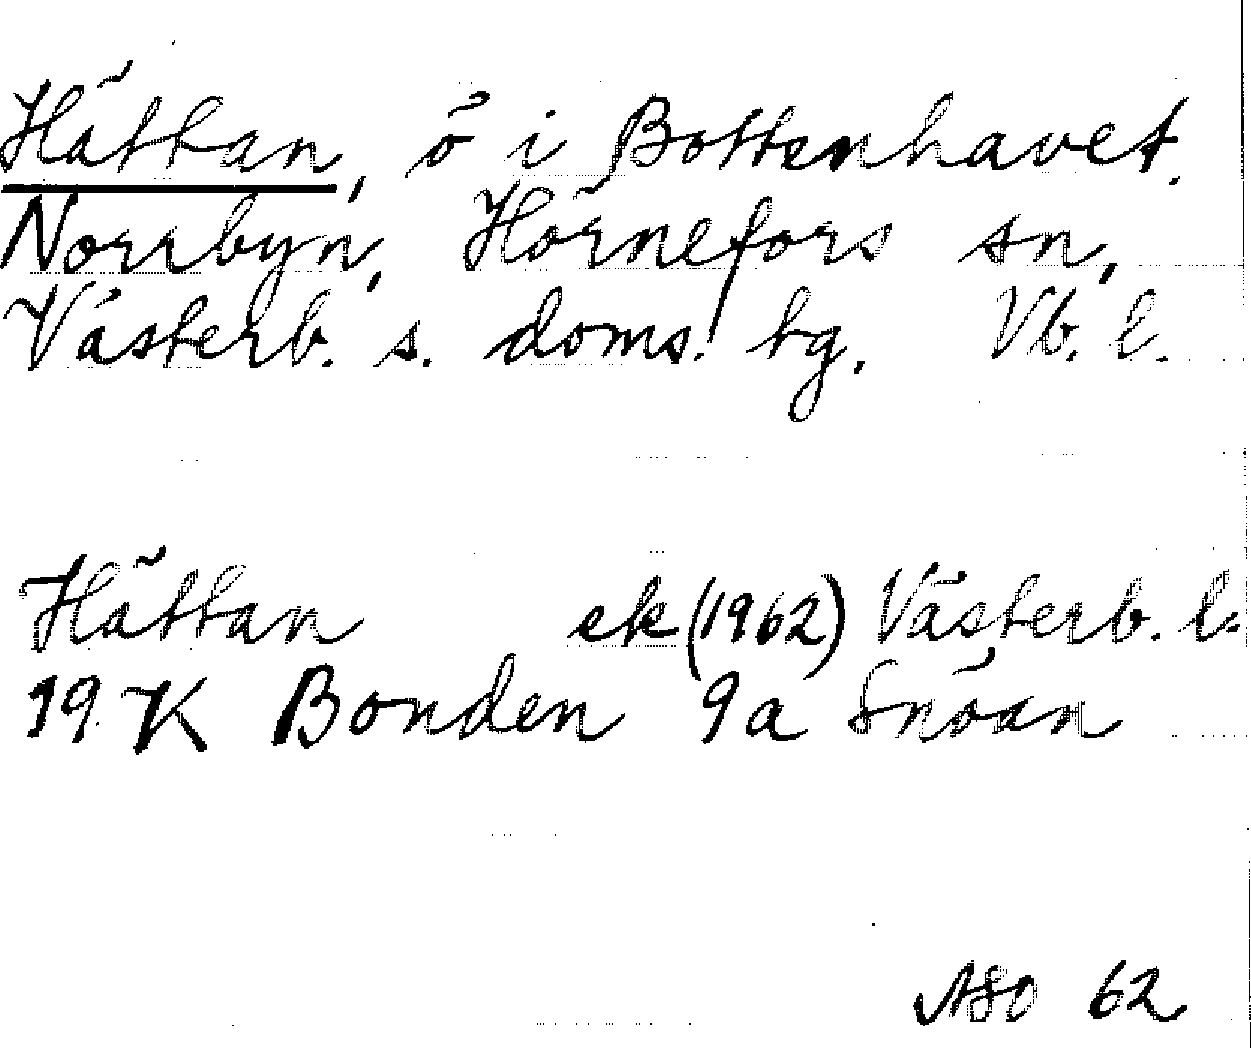 Hättan, ö i Bottenhavet.
Norrbyn, Hörnefors sn,
Västerb. s. doms. tg. Vb. l.
Hättan ek (1962) Västerb. l:
19 K Bonden 9a Snöan
ASO 62